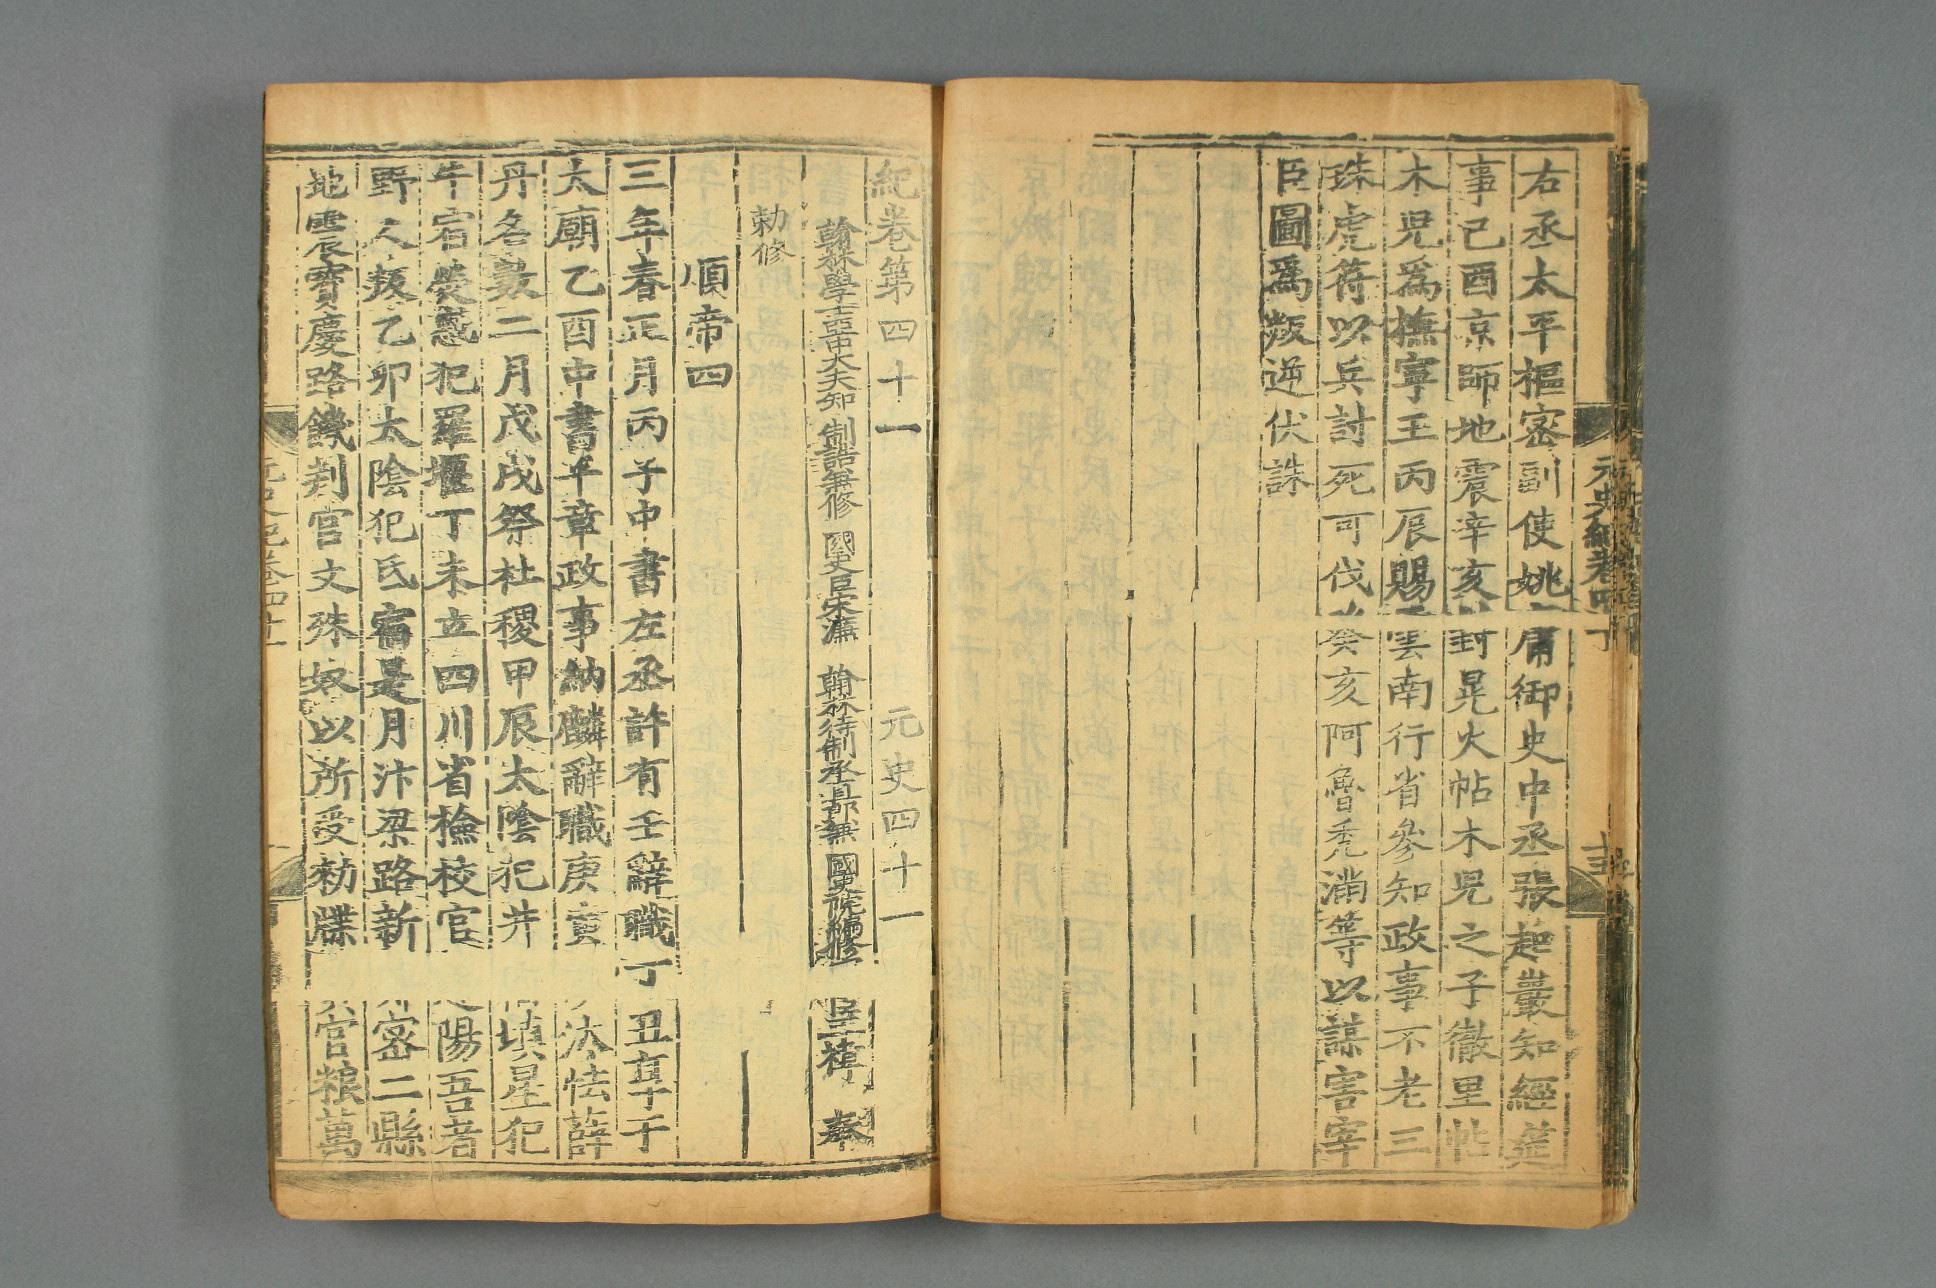 右丞太平樞密副使姚庸御史中丞張起巖知經筵
事己酉京師地震辛亥封晃火帖木兒之子徹里帖
木兒爲撫寧王丙辰賜雲南行省參知政事不老三
珠虎符以兵討死可伐癸亥阿魯禿滿等以謀害宰
臣圖爲叛逆伏誅
紀卷第四十一 元史四十一
翰林學士亞中大夫知制誥兼修國史臣宋濂 翰林待制承直郎兼國史院編修 王褘 奉
勅修
順帝四
三年春正月丙子中書左丞許有壬辭職丁丑享于
太廟乙酉中書平章政事納麟辭職庚寅沙汰怯薛
丹名數二月戊戌祭社稷甲辰太陰犯井填星犯
牛宿熒惑犯羅堰丁未立四川省檢校官遼陽吾者
野人叛乙卯太陰犯氐宿是月汴梁路新鄭密二縣
地震寶慶路饑判官文殊奴以所受勑牒貸官粮萬
元史紀卷四十一